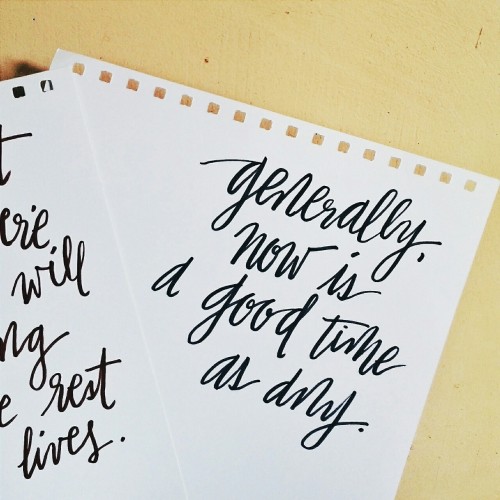 will
rest
lives.
generally,
now is
a good time
as any.